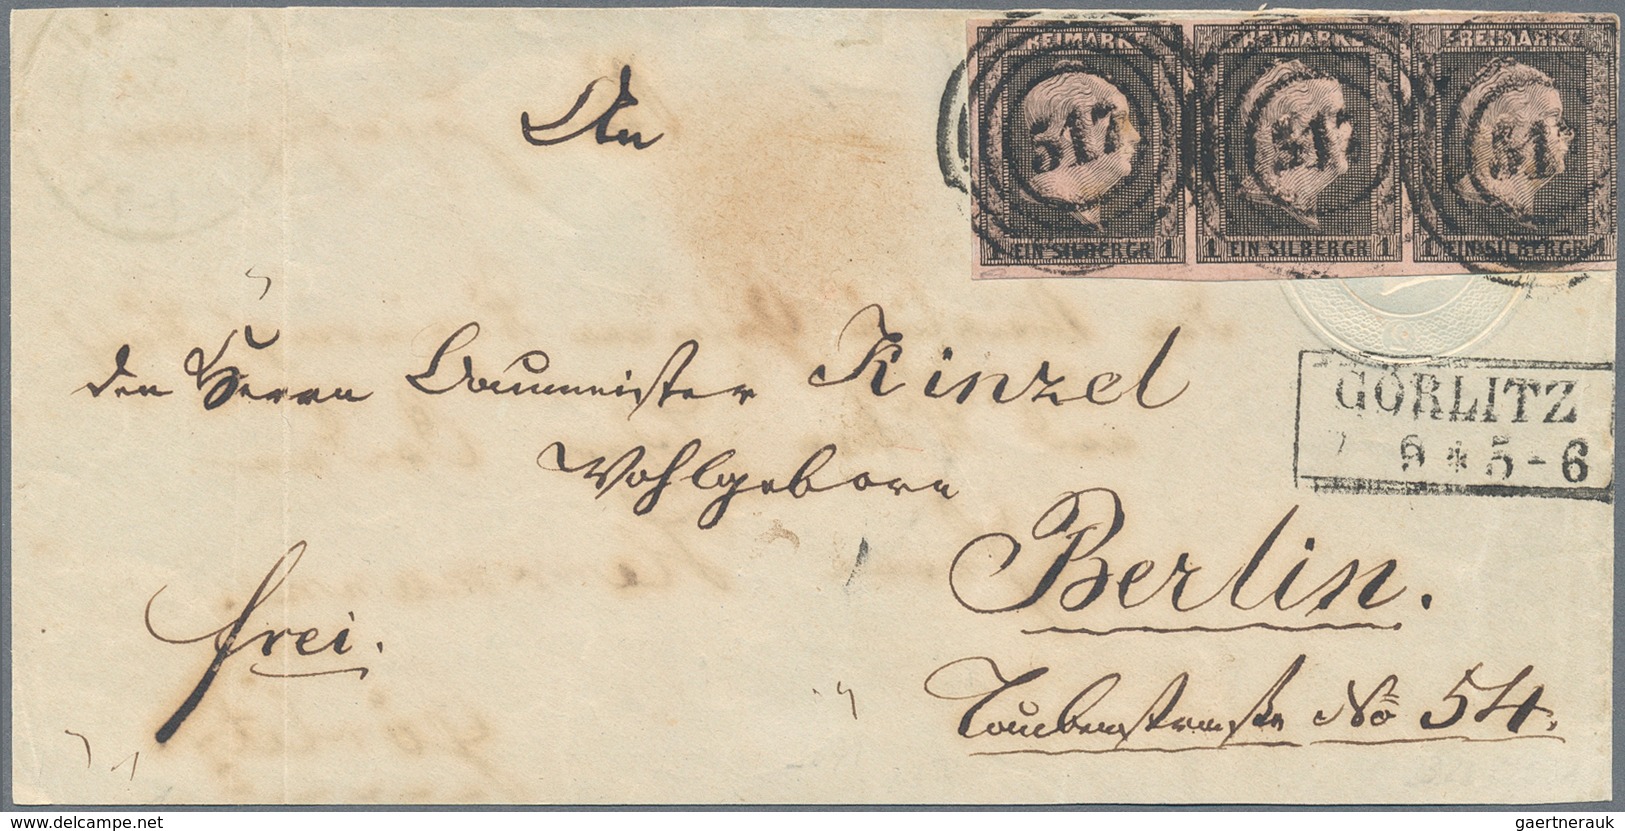 FREIMARKE FREIMARKE FREIMARKE
517 517 517
1 EIN SILBERGR 1 1 EIN SILBERGR 1 1 EIN SILBERGR 1
An
den Herrn Baumeister Kinzel
Wohlgeboren
Berlin.
Taubenstraße No 54.
frei.
GÖRLITZ
9 * 5-6
www.delcampe.net
gaertnerauk